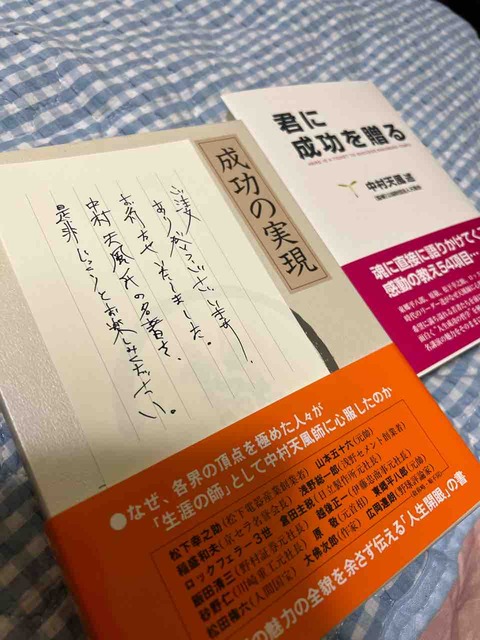 成功の実現
ご注文
ありがとうございます。
お待たせいたしました。
中村天風氏の名著を、
是非じっくりとお楽しみください。
●なぜ、各界の頂点を極めた人々が
「生涯の師」として中村天風師に心服したのか
松下幸之助(松下電器産業創業者) 山本五十六(元帥)
稲盛和夫(京セラ名誉会長) 浅野総一郎(浅野セメント創業者)
ロックフェラー3世 倉田主税(日立製作所元社長)
飯田清三(野村証券元社長) 越後正一(伊藤忠商事元会長)
砂野仁(川崎重工元社長) 東郷平八郎(元帥)
松田権六(人間国宝) 原 敬(元首相) 広岡達朗(野球評論家)
大佛次郎(作家)
の魅力の全貌を余さず伝える「人生開眼」の書
君に
成功を贈る
中村天風 述
魂に直接に語りかけてく
感動の教え54項目…